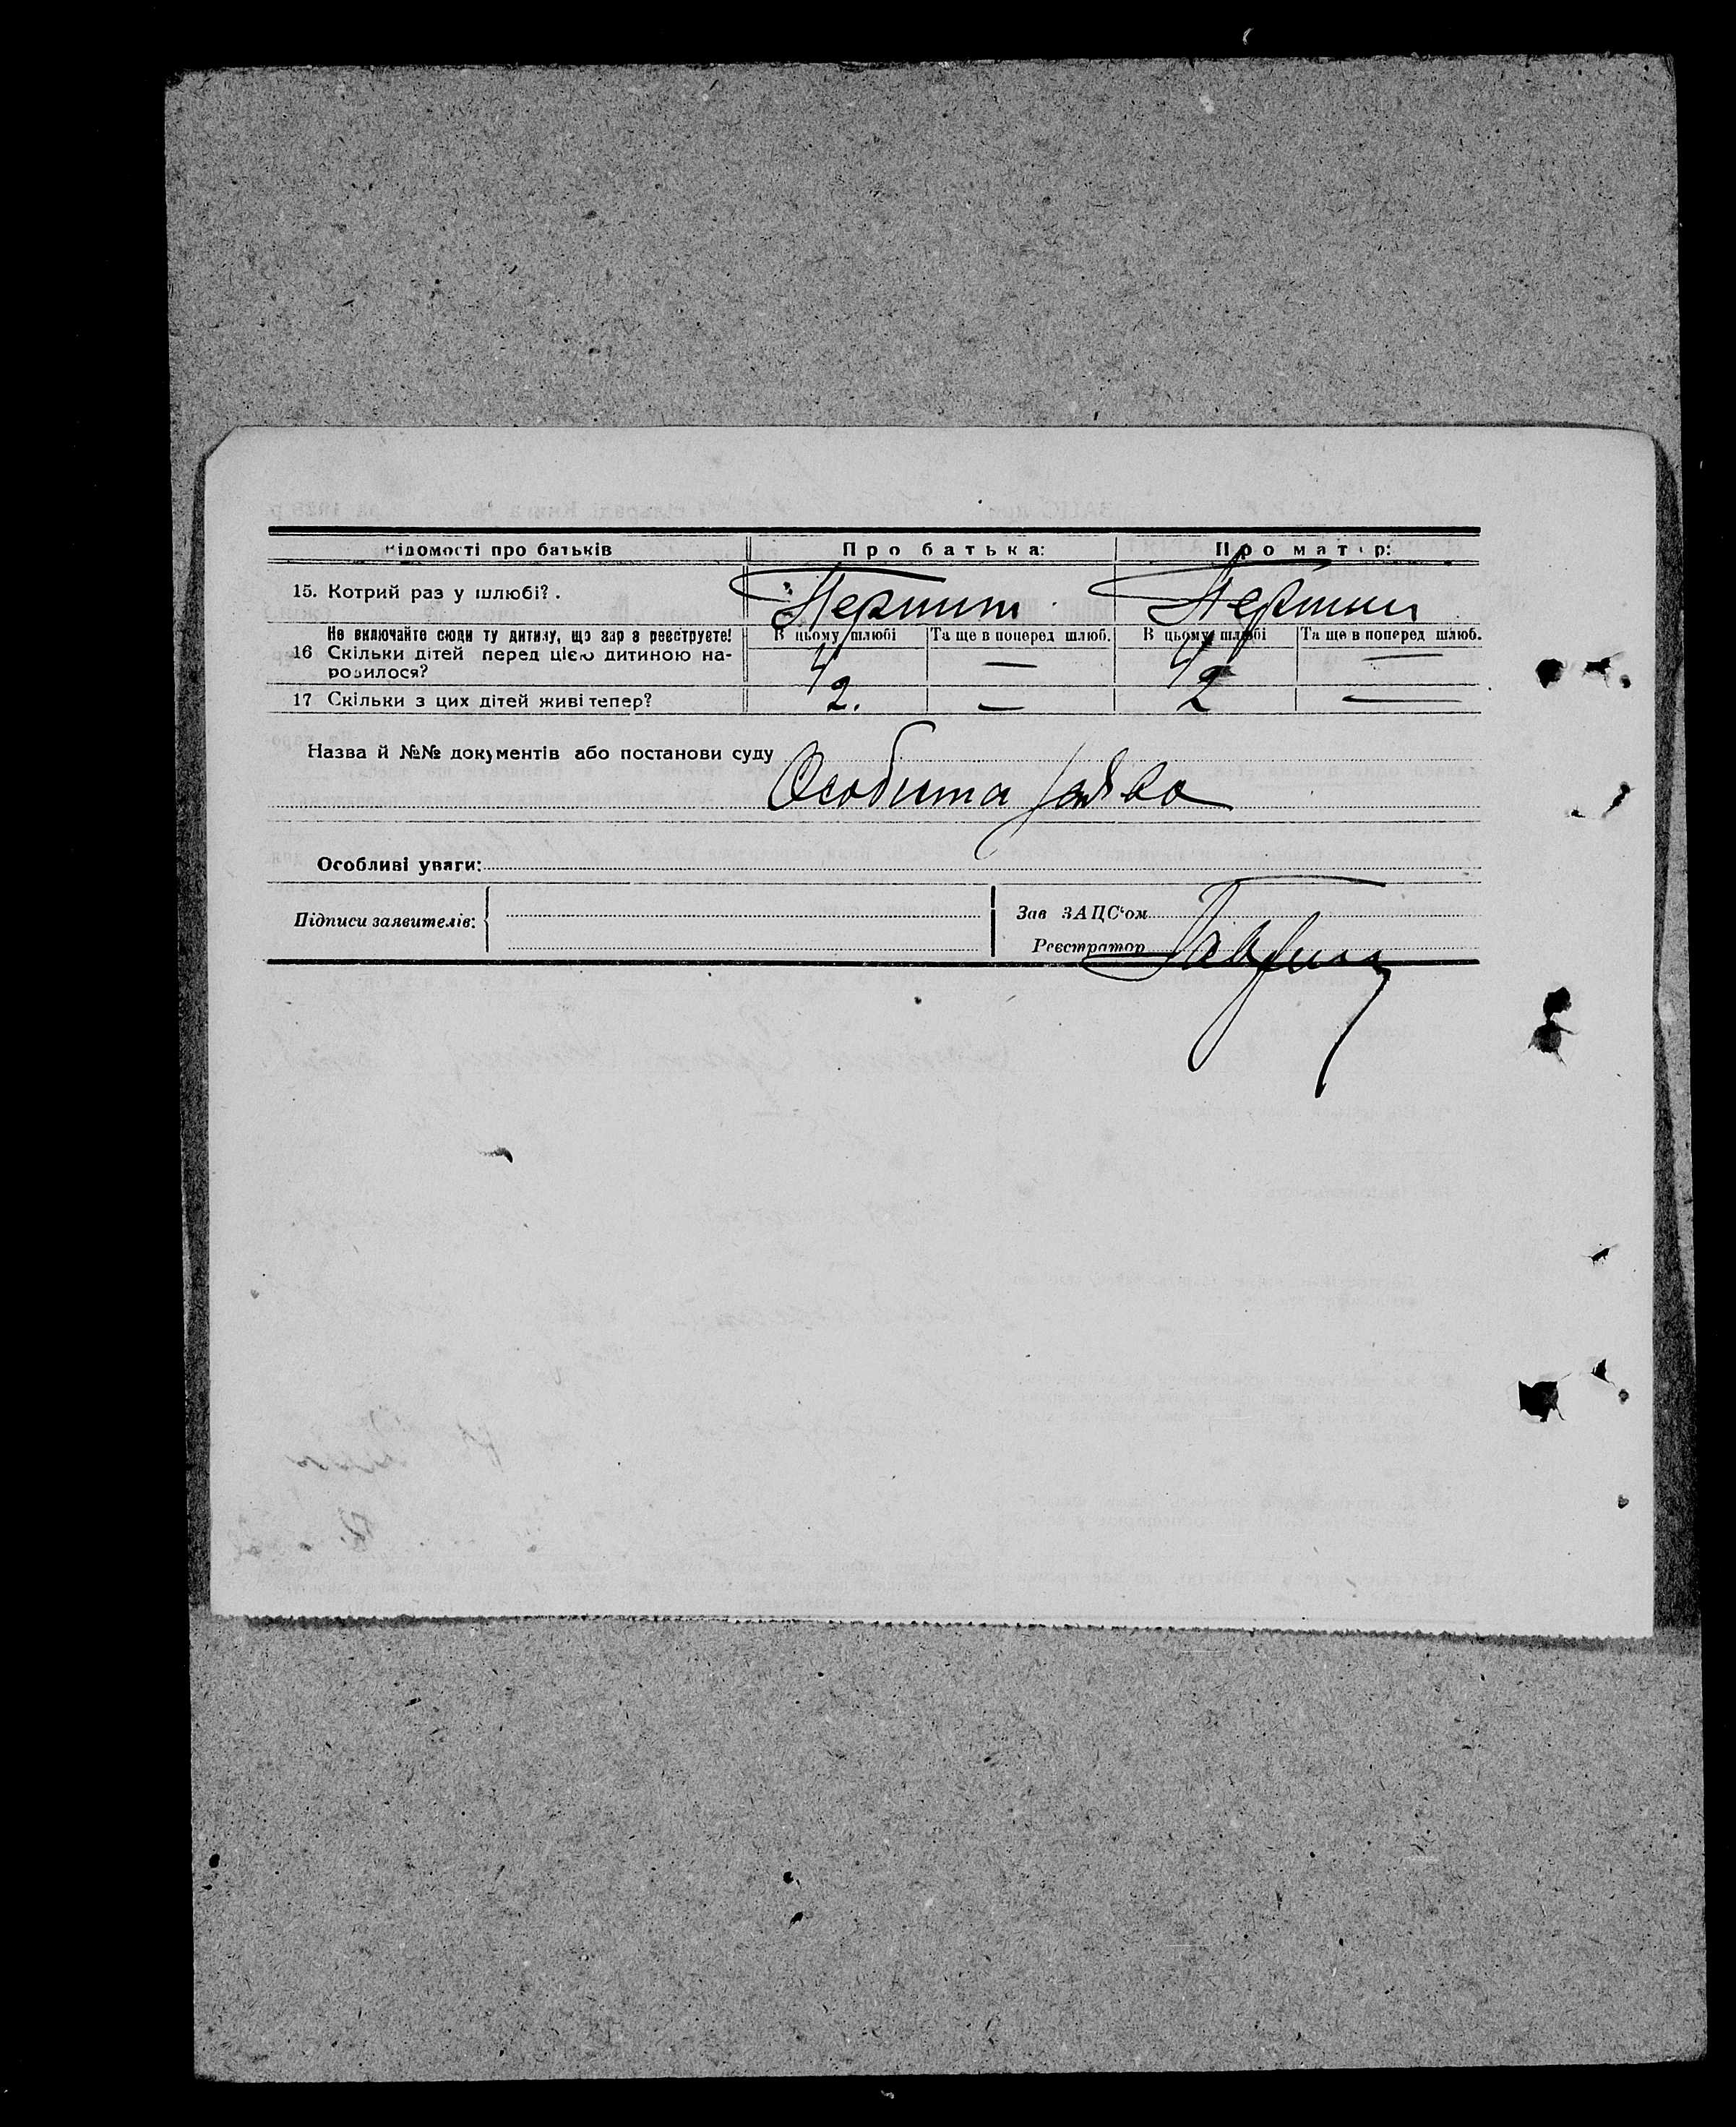 Відомості про батьків Про батька: Про матір:
15. Котрий раз у шлюбі?. Перший Перший
Не включайте сюди ту дитину, що зараз реєструєте! В цьому шлюбі Та ще в поперед шлюб. В цьому шлюбі Та ще в поперед шлюб.
16 Скільки дітей перед цією дитиною на-
родилося? 4 — 4 —
17 Скільки з цих дітей живі тепер? 2. — 2 —
Назва й №№ документів або постанови суду
Особиста заява
Особливі уваги:
Підписи заявителів: Зав ЗАЦС'ом
Реєстратор